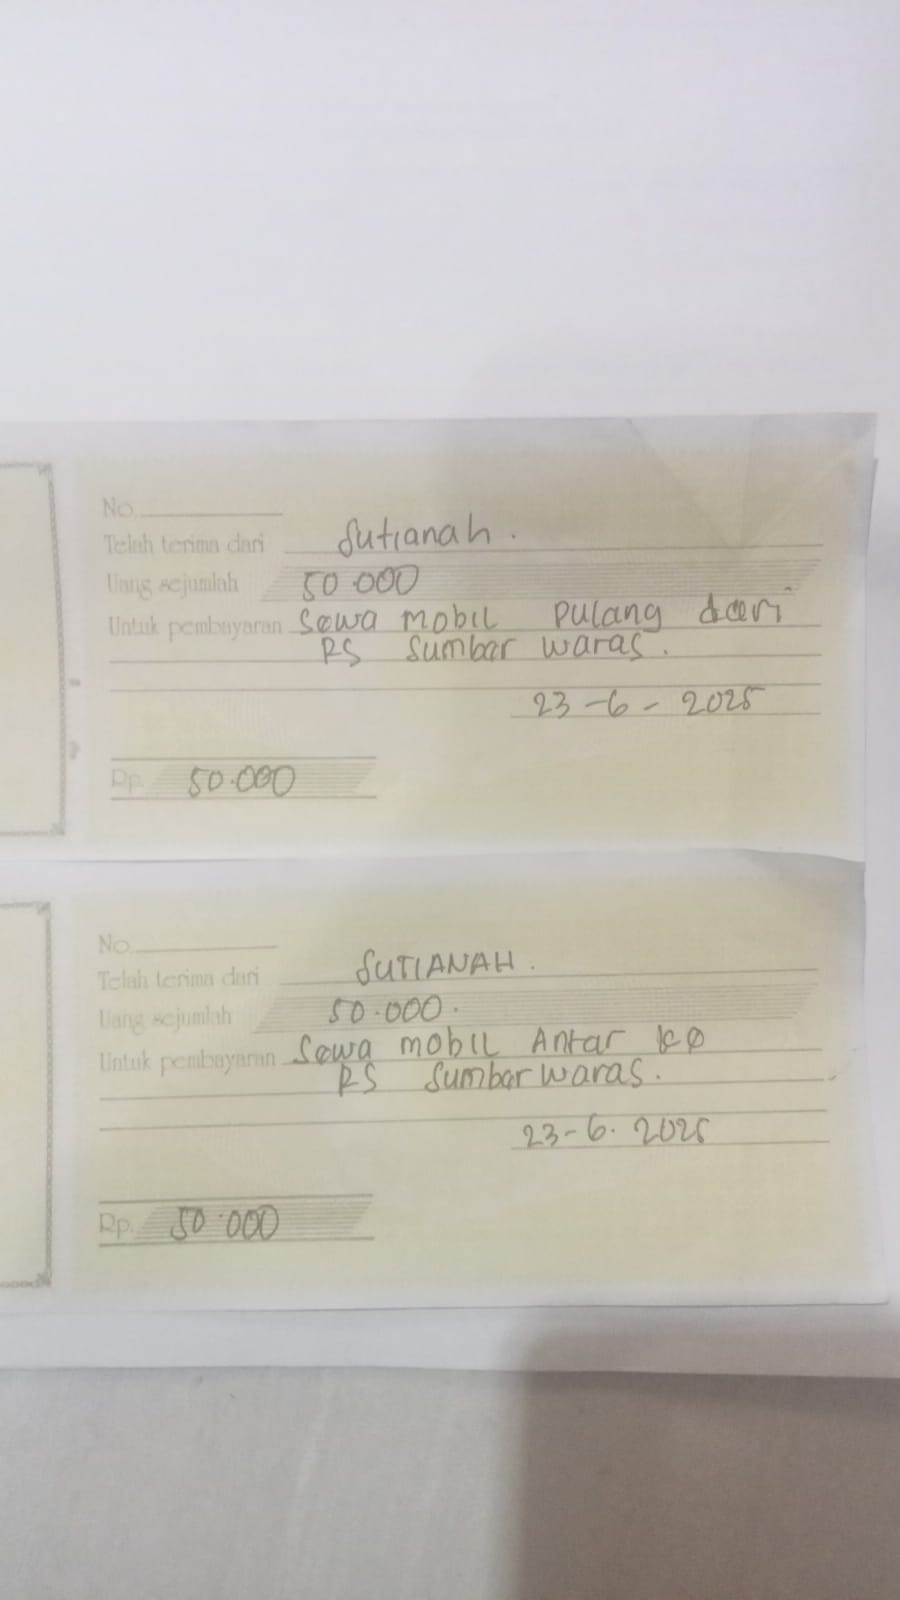 No.
Telah terima dari Sutianah.
Uang sejumlah 50.000
Untuk pembayaran Sewa mobil pulang dari
RS Sumbar waras.
23-6-2025
Rp. 50.000
No.
Telah terima dari SUTIANAH.
Uang sejumlah 50.000.
Untuk pembayaran Sewa mobil Antar ke
RS Sumbar waras.
23-6.2025
Rp. 50.000